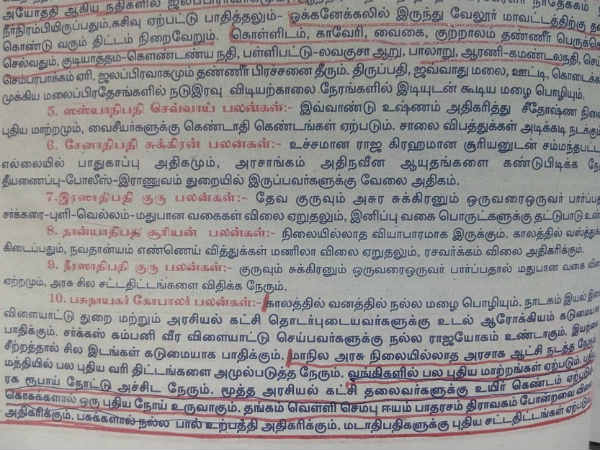 அயோத்தி ஆகிய நதிகளில் ஜலப்பிரவாகமும்
நீர்நிரம்பியிருப்பதும்,கசிவு ஏற்பட்டு பாதித்தலும்- ஒக்கனேக்கலில் இருந்து வேலூர் மாவட்டத்திற்கு
கொண்டு வரும் திட்டம் நிறைவேறும். கொள்ளிடம், காவேரி, வைகை, குற்றாலம் தண்ணீர்
செல்வதும், குடியாத்தம்-கௌண்டண்ய நதி, பள்ளிபட்டு-லவகுசா ஆறு, பாலாறு, ஆரணி-கமண்டலநதி,
செம்பரபாக்கம் ஏரி, ஜலப்பிரவாகமும் தண்ணீர் பிரச்சனை தீரும். திருப்பதி, ஜவ்வாது மலை, ஊட்டி,
முக்கிய மலைப்பிரதேசங்களில் நடுஇரவு விடியற்காலை நேரங்களில் இடியுடன் கூடிய மழை பொழியும்.
5. ஸஸ்யாதிபதி செவ்வாய் பலன்கள்:- இவ்வாண்டு உஷ்ணம் அதிகரித்து சீதோஷ்ண
புதிய மாற்றமும், வைசீயர்களுக்கு கெண்டாதி கெண்டங்கள் ஏற்படும். சாலை விபத்துக்கள் அடிக்கடி
6. சேனாதிபதி சுக்கிரன் பலன்கள்:- உச்சமான ராஜ கிரஹமான சூரியனுடன்
எல்லையில் பாதுகாப்பு அதிகமும், அரசாங்கம் அதிநவீன ஆயுதங்களை கண்டுபிடிக்க
தீயணைப்பு-போலீஸ்-இராணுவம் துறையில் இருப்பவர்களுக்கு வேலை அதிகம்.
7.இரஸாதிபதி குரு பலன்கள்:- தேவ குருவும் அசுர சுக்கிரனும் ஒருவரைஒருவர்
சர்க்கரை-புளி-வெல்லம்-மதுபான வகைகள் விலை ஏறுதலும், இனிப்பு வகை பொருட்களுக்கு தட்டுபாடு
8. தான்யாதிபதி சூரியன் பலன்கள்:- நிலையில்லாத வியாபாரமாக இருக்கும். காலத்தில்
கிடைப்பதும், நவதான்யம் எண்ணெய் வித்துக்கள் மணிலா விலை ஏறுதலும், ரசவர்க்கம் விலை அதிகரிக்கும்.
9. நீரஸாதிபதி குரு பலன்கள்:- குருவும் சுக்கிரனும் ஒருவரைஒருவர் பார்ப்பதால் மதுபான வகை
ஏற்றமும், அரசு சில சட்டதிட்டங்களை விதிக்க நேரும்.
10. பசுநாயகர் கோபாலர் பலன்கள்:- காலத்தில் வனத்தில் நல்ல மழை பொழியும். நாடகம் இயல்
விளையாட்டு துறை மற்றும் அரசியல் கட்சி தொடர்புடையவர்களுக்கு உடல் ஆரோக்கியம்
பாதிக்கும். சர்க்கஸ் கம்பனி வீர விளையாட்டு செய்பவர்களுக்கு நல்ல ராஜயோகம் உண்டாகும்.
சீற்றத்தால் சில இடங்கள் கடுமையாக பாதிக்கும். மாநில அரசு நிலையில்லாத அரசாக ஆட்சி நடத்த நேரும்.
மத்தியில் பல புதிய வரி திட்டங்களை அமுல்படுத்த நேரும். வங்கிகளில் பல புதிய மாற்றங்கள் ஏற்படும்.
ரக ரூபாய் நோட்டு அச்சிட நேரும். மூத்த அரசியல் கட்சி தலைவர்களுக்கு உயிர் கெண்டம்
கொசுக்களால் ஒரு புதிய நோய் உருவாகும். தங்கம் வெள்ளி செம்பு ஈயம் பாதரசம் திராவகம்
அதிகரிக்கும். பசுக்களால் நல்ல பால் உற்பத்தி அதிகரிக்கும். மடாதிபதிகளுக்கு புதிய சட்டதிட்டங்கள்